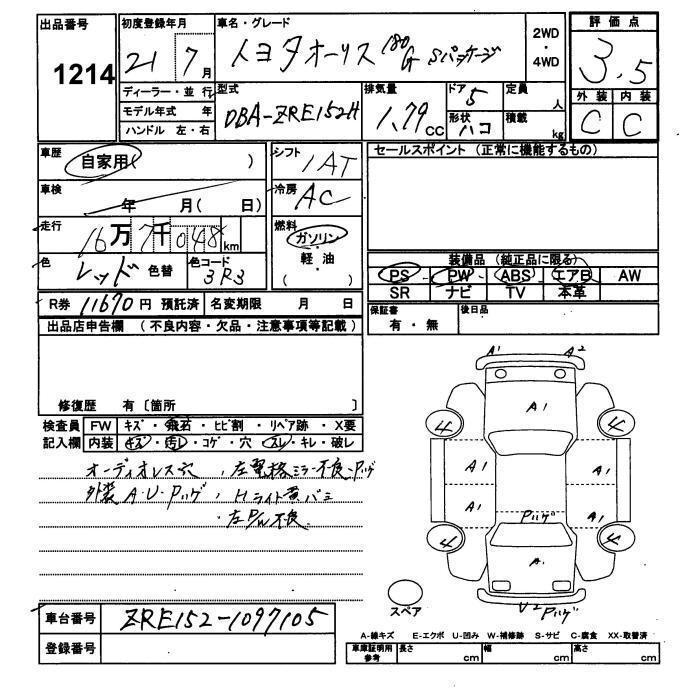 出品番号
1214
初度登録年月
21 7 月
車名・グレード
トヨタオーリス 180G Sパッケージ
2WD
・
4WD
評価点
3.5
外装 内装
C C
ディーラー・並行
モデル年式 年
ハンドル 左・右
型式
DBA-ZRE152H
排気量
1.79 CC
ドア
5
形状
ハコ
定員
人
積載
kg
車歴
自家用( )
シフト
IAT
車検
年 月( 日)
冷房
AC
走行
16万7千048 km
燃料
ガソリン
・
軽・油
( )
色
レッド 色替
色コード
3R3
セールスポイント (正常に機能するもの)
装備品 (純正品に限る)
PS PW ABS エアB AW
SR ナビ TV 本革
R券 11670円 預託済
名変期限 月 日
保証書
有・無
後日品
出品店申告欄 (不良内容・欠品・注意事項等記載)
修復歴 有〔箇所 〕
検査員
記入欄
FW キズ・飛石・ヒビ割・リペア跡・X要
内装 キズ・汚レ・コゲ・穴・スレ・キレ・破レ
オーディオレス穴 ・左電格ミラー不良・Pッゲ
外装A・U・Pッゲ ・Hライト黄バミ
・左P/W不良
車台番号
ZRE152-1097105
登録番号
A1 A2
A1
4 4
A1 A1
A1 A1
Pッゲ
4 4
A1
U2 Pッゲ
スペア
A-線キズ E-エクボ U-凹み W-補修跡 S-サビ C-腐食 XX-取替済
車庫証明用
参考
長さ cm
幅 cm
高さ cm